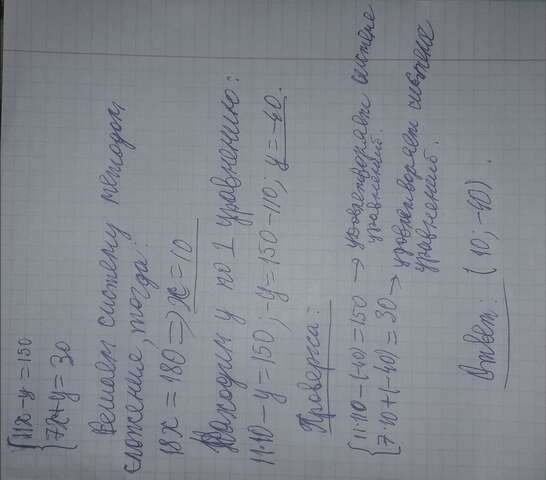 {11x-y=150
{7x+y=30
Решаем систему методом
сложение, тогда:
18x=180 => x=10
Находим y по 1 уравнению:
11·10-y=150; -y=150-110; y=-40.
Проверка:
{11·10-(-40)=150 → удовлетворяет системе
уравнений.
{7·10+(-40)=30 → удовлетворяет системе
уравнений.
Ответ: (10; -40).